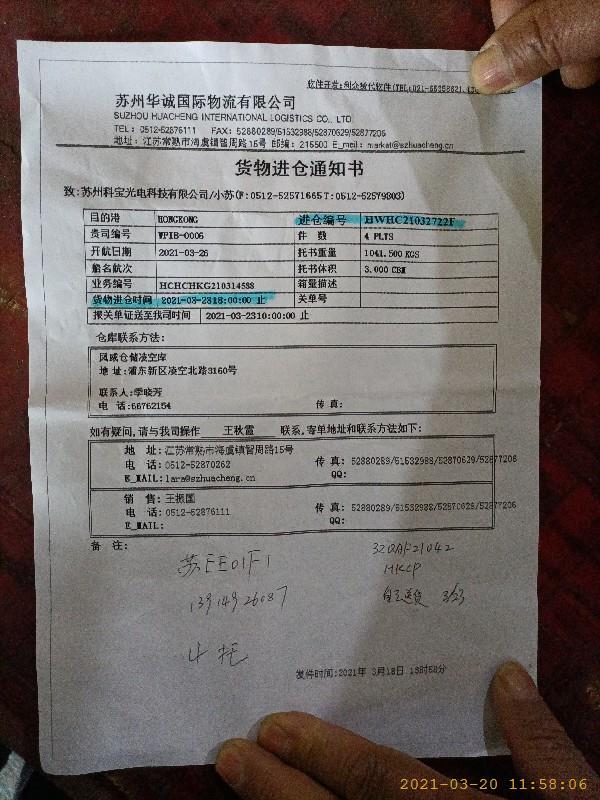 软件开发:利众捷代软件(TEL:021-
苏州华诚国际物流有限公司
SUZHOU HUACHENG INTERNATIONAL LOGISTICS CO., LTD
TEL: 0512-52876111 FAX: 52880289/51532988/52870629/52877206
地址: 江苏常熟市海虞镇智周路15号 邮编: 215500 E_mail: market@szhuacheng.cn
货物进仓通知书
致:苏州科宝光电科技有限公司/小苏(F:0512-52571665 T:0512-52579803)
目的港 HONGKONG 进仓编号 HWHC21032722F
贵司编号 WPIB-0006 件 数 4 PLTS
开航日期 2021-03-26 托书重量 1041.500 KGS
船名航次 托书体积 3.000 CBM
业务编号 HCHCHKG210314588 箱量描述
货物进仓时间 2021-03-2318:00:00 止 关单号
报关单证送至我司时间 2021-03-2310:00:00 止
仓库联系方法:
风威仓储凌空库
地 址:浦东新区凌空北路3160号
联系人:季晓芳
电 话:66762154 传 真:
如有疑问,请与我司操作 王秋霞 联系,寄单地址和联系方法如下:
地 址: 江苏常熟市海虞镇智周路15号
电 话: 0512-52870262 传 真: 52880289/51532988/52870629/52877206
E_MAIL:lara@szhuacheng.cn QQ:
销 售: 王振国
电 话: 0512-52876111 传 真: 52880289/51532988/52870629/52877206
E_MAIL: QQ:
备 注:
苏EE01F1 32QAF21042
13914926087 HKCP
自己送货 3/23
4托
发件时间:2021年 3月18日
2021-03-20 11:58:06